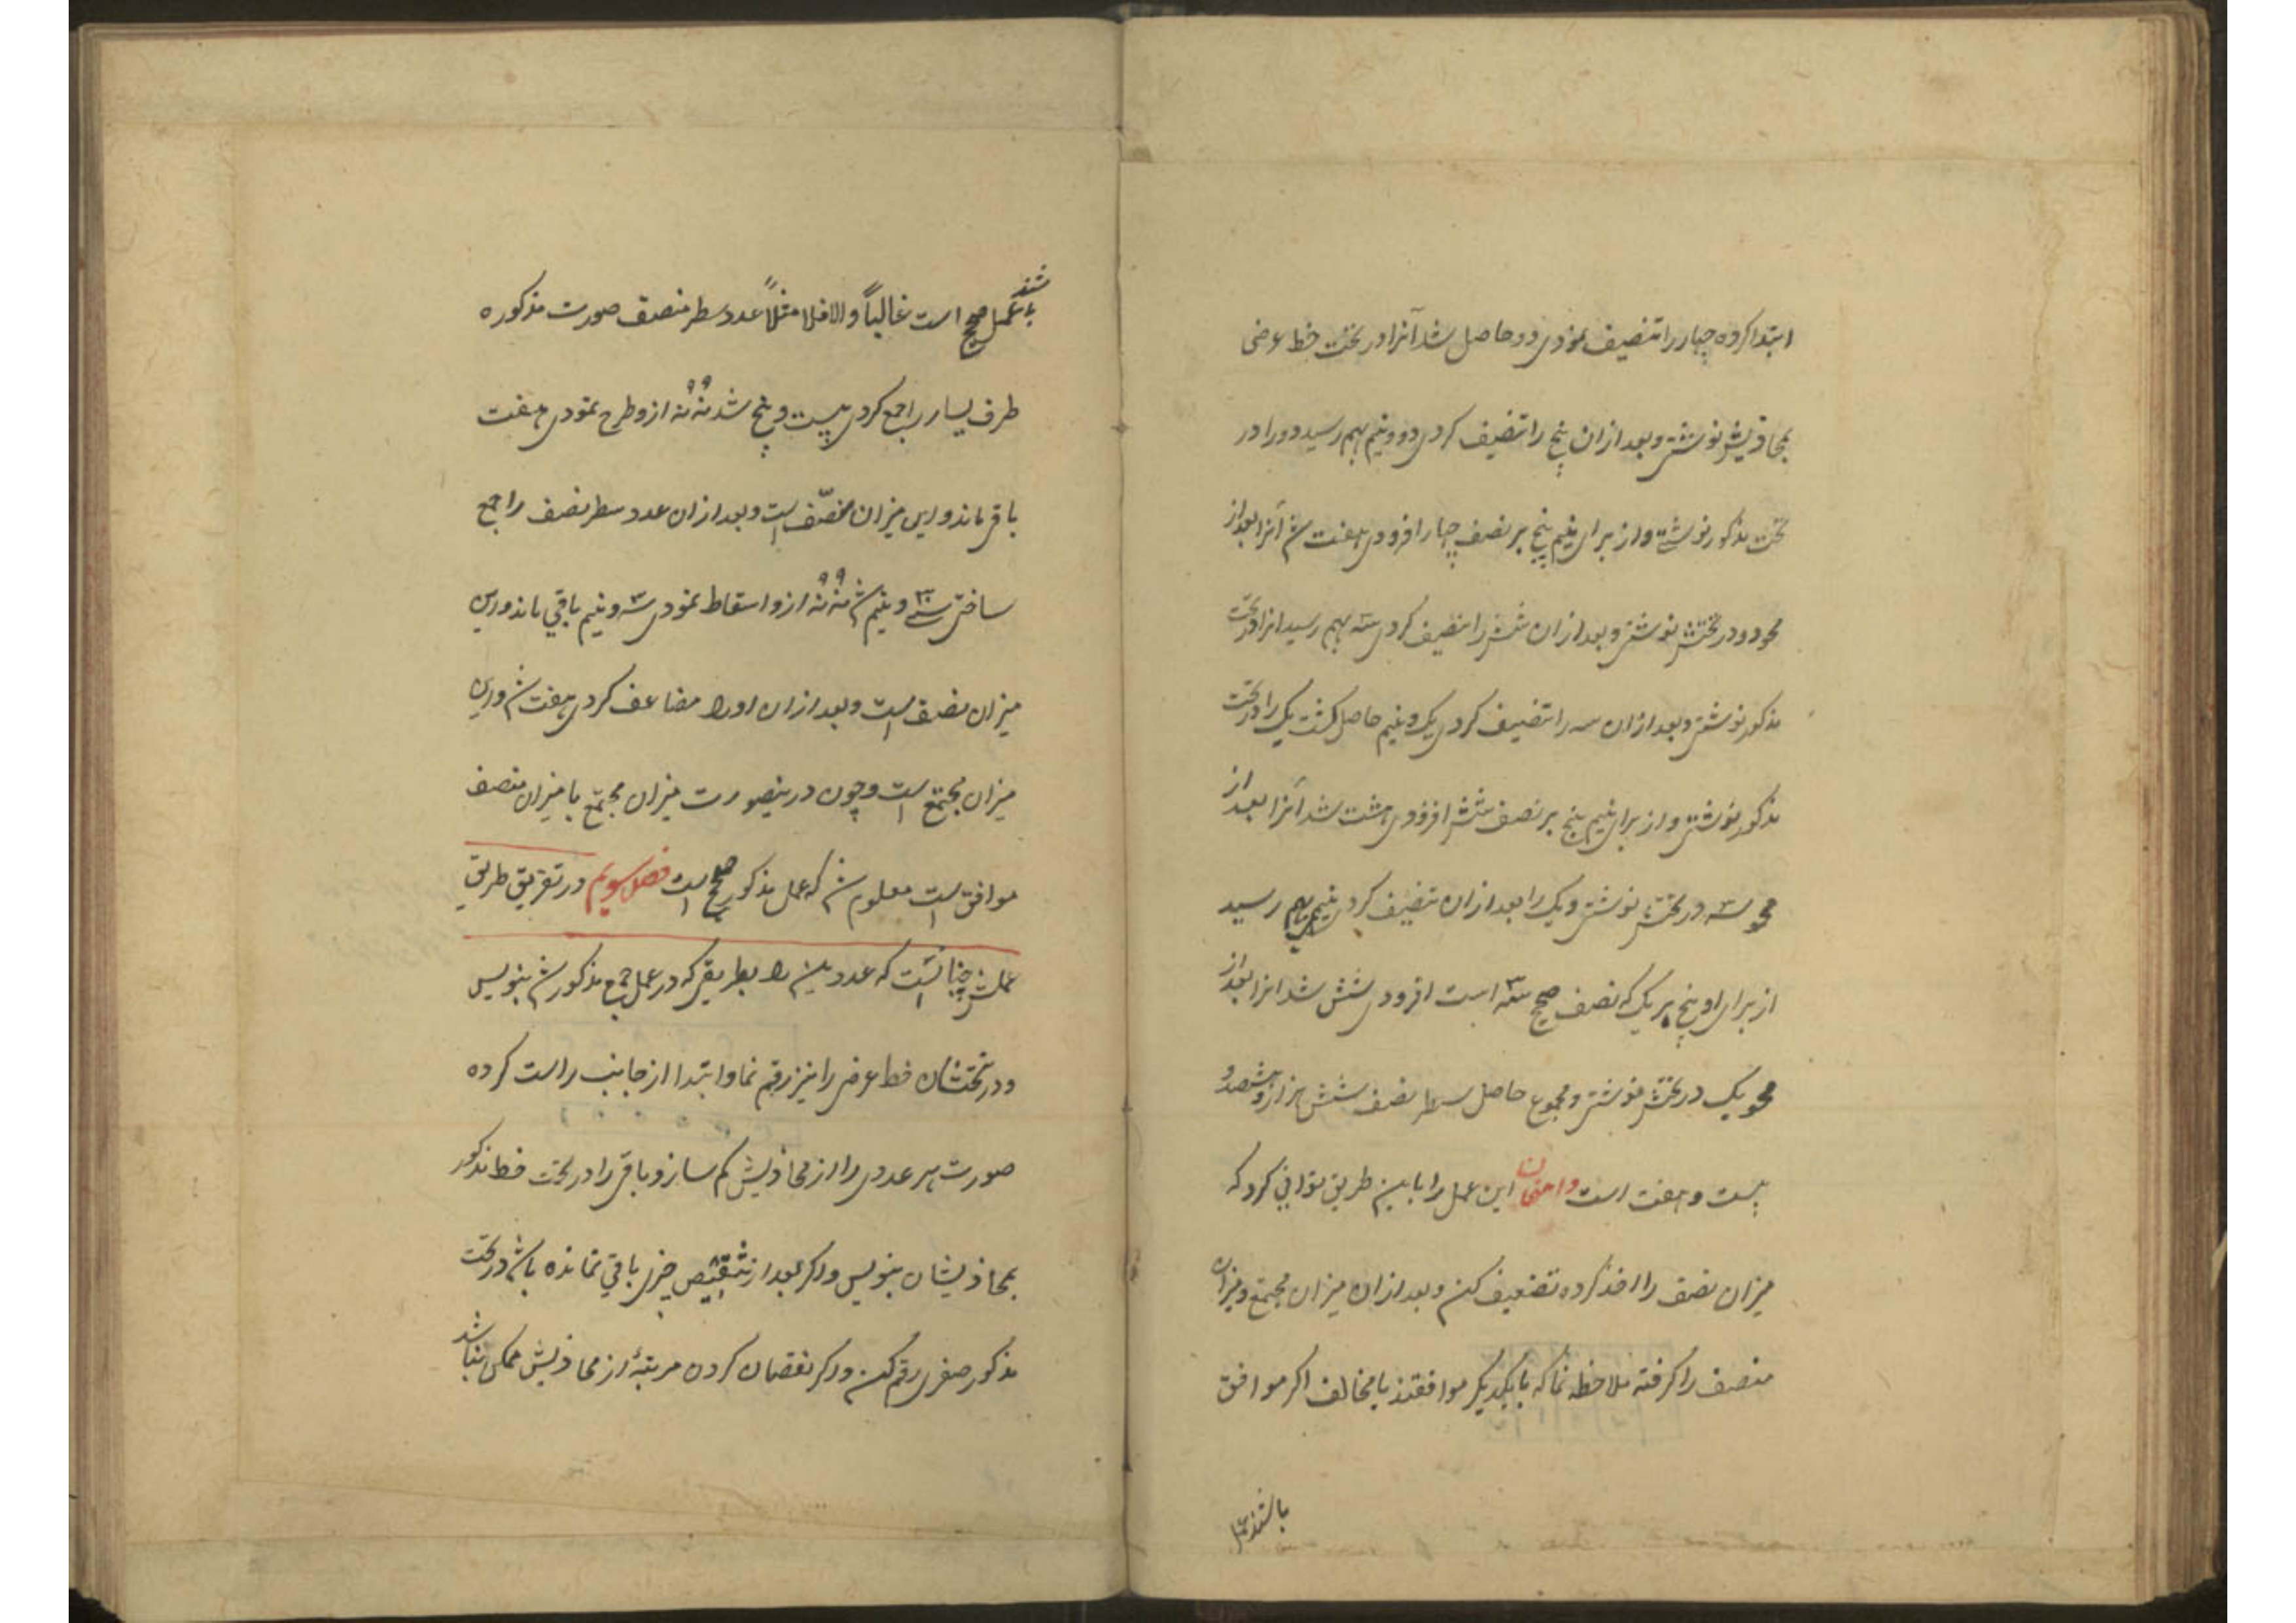 ابتدا کرده چهار را تنصیف نمودی دو حاصل شد آنرا در تحت خط عرضی
بمحاذیش نوشتی و بعد ازان پنج را تنصیف کردی دو و نیم بهم رسید دو را در
تحت مذکور نوشتی و از برای نیم پنج بر نصف چهار افزودی هفت شد آنرا بعد از
محو دو در تحتش نوشتی و بعد ازان شش را تنصیف کردی سه بهم رسید انرا در تحت
مذکور نوشتی و بعد ازان سه را تنصیف کردی یک و نیم حاصل کشت یک را در تحت
مذکور نوشتی و از برای نیم پنج بر نصف شش افزودی هشت شد آنرا بعد از
محو سه در تحتش نوشتی و یک را بعد ازان تنصیف کردی نیم بهم رسید
از برای او پنج بر یک که نصف صحیح سه است افزودی شش شد انرا بعد از
محو یک در تحتش نوشتی و مجموع حاصل سطر نصف شش هزار و هشتصد و
بیست و هفت است وامتحان این عمل را باین طریق توانی کرد که
میزان نصف را اخذ کرده تضعیف کن و بعد ازان میزان مجتمع و میزان
منصف را کرفته ملاحظه نما که با یکدیکر موافقند یا مخالف اکر موافق
باشند عمل
باشند عمل صحیح است غالباً والا فلا مثلاً عدد سطر منصف صورت مذکوره
طرف یسار را جمع کردی بیست و پنج شد نه نه ازو طرح نمودی هفت
باقی ماند و این میزان منصّف است و بعد ازان عدد سطر نصف را جمع
ساختی سی و نیم شد نه نه ازو اسقاط نمودی سه و نیم باقی ماند و این
میزان نصف است و بعد ازان او را مضاعف کردی هفت شد و این
میزان مجتمع است و چون درینصورت میزان مجتمع با میزان منصف
موافق است معلوم شد که عمل مذکور صحیح است فصل سویم در تفریق طریق
عملش چنانست که عددین را بطریقی که در عمل جمع مذکور شد بنویس
و در تحتشان خط عرضی را نیز رقم نما و ابتدا از جانب راست کرده
صورت هر عددی را از محاذیش کم ساز و باقی را در تحت خط مذکور
بمحاذیشان بنویس و اکر بعد از تنقیص چیزی باقی نمانده باشد در تحت
مذکور صفری رقم کن و اکر نقصان کردن مرتبهٔ از محاذیش ممکن نباشد